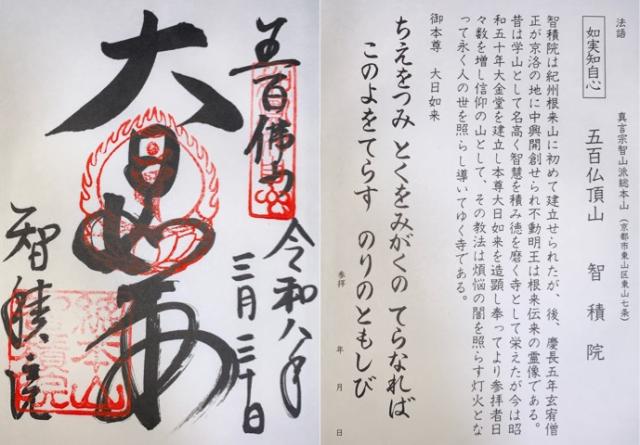 五百佛山
大日如来
智積院
令和八年
三月三十日
総本山
智積院
法語
如実知自心
真言宗智山派総本山(京都市東山区東山七条)
五百仏頂山 智積院
智積院は紀州根来山に初めて建立せられたが、後、慶長五年玄宥僧
正が京洛の地に中興開創せられ不動明王は根来伝来の霊像である。
昔は学山として名高く智慧を積み徳を磨く寺として栄えたが今は昭
和五十年大金堂を建立し本尊大日如来を造顕し奉ってより参拝者日
々数を増し信仰の山として、その教法は煩悩の闇を照らす灯火とな
って永く人の世を照らし導いてゆく寺である。
御本尊 大日如来
ちえをつみ とくをみがくの てらなれば
このよをてらす のりのともしび
参拝 年 月 日